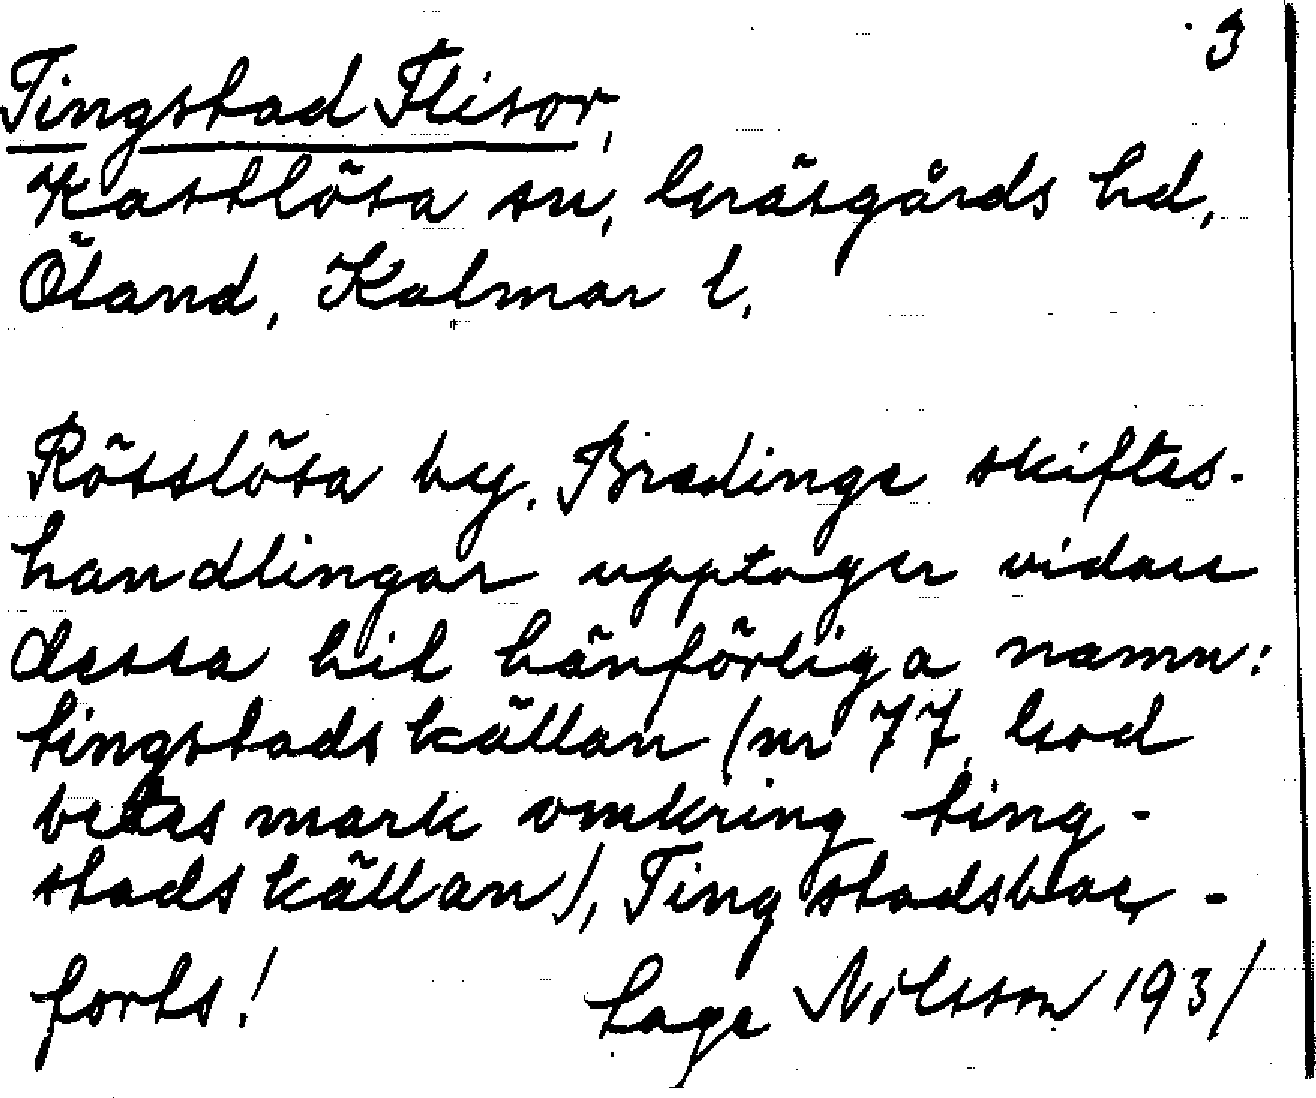 3
Tingstad Flisor,
Kastlösa sn, Gräsgårds hd,
Öland, Kalmar l.
Rösslösa by. Bredinge skiftes-
handlingar upptager vidare
dessa hit hänförliga namn:
tingstads källan (nr 77, hod
betes mark omkring ting-
stads källan), Tingstadsbac-
forts!
Lage Nilsson 1931